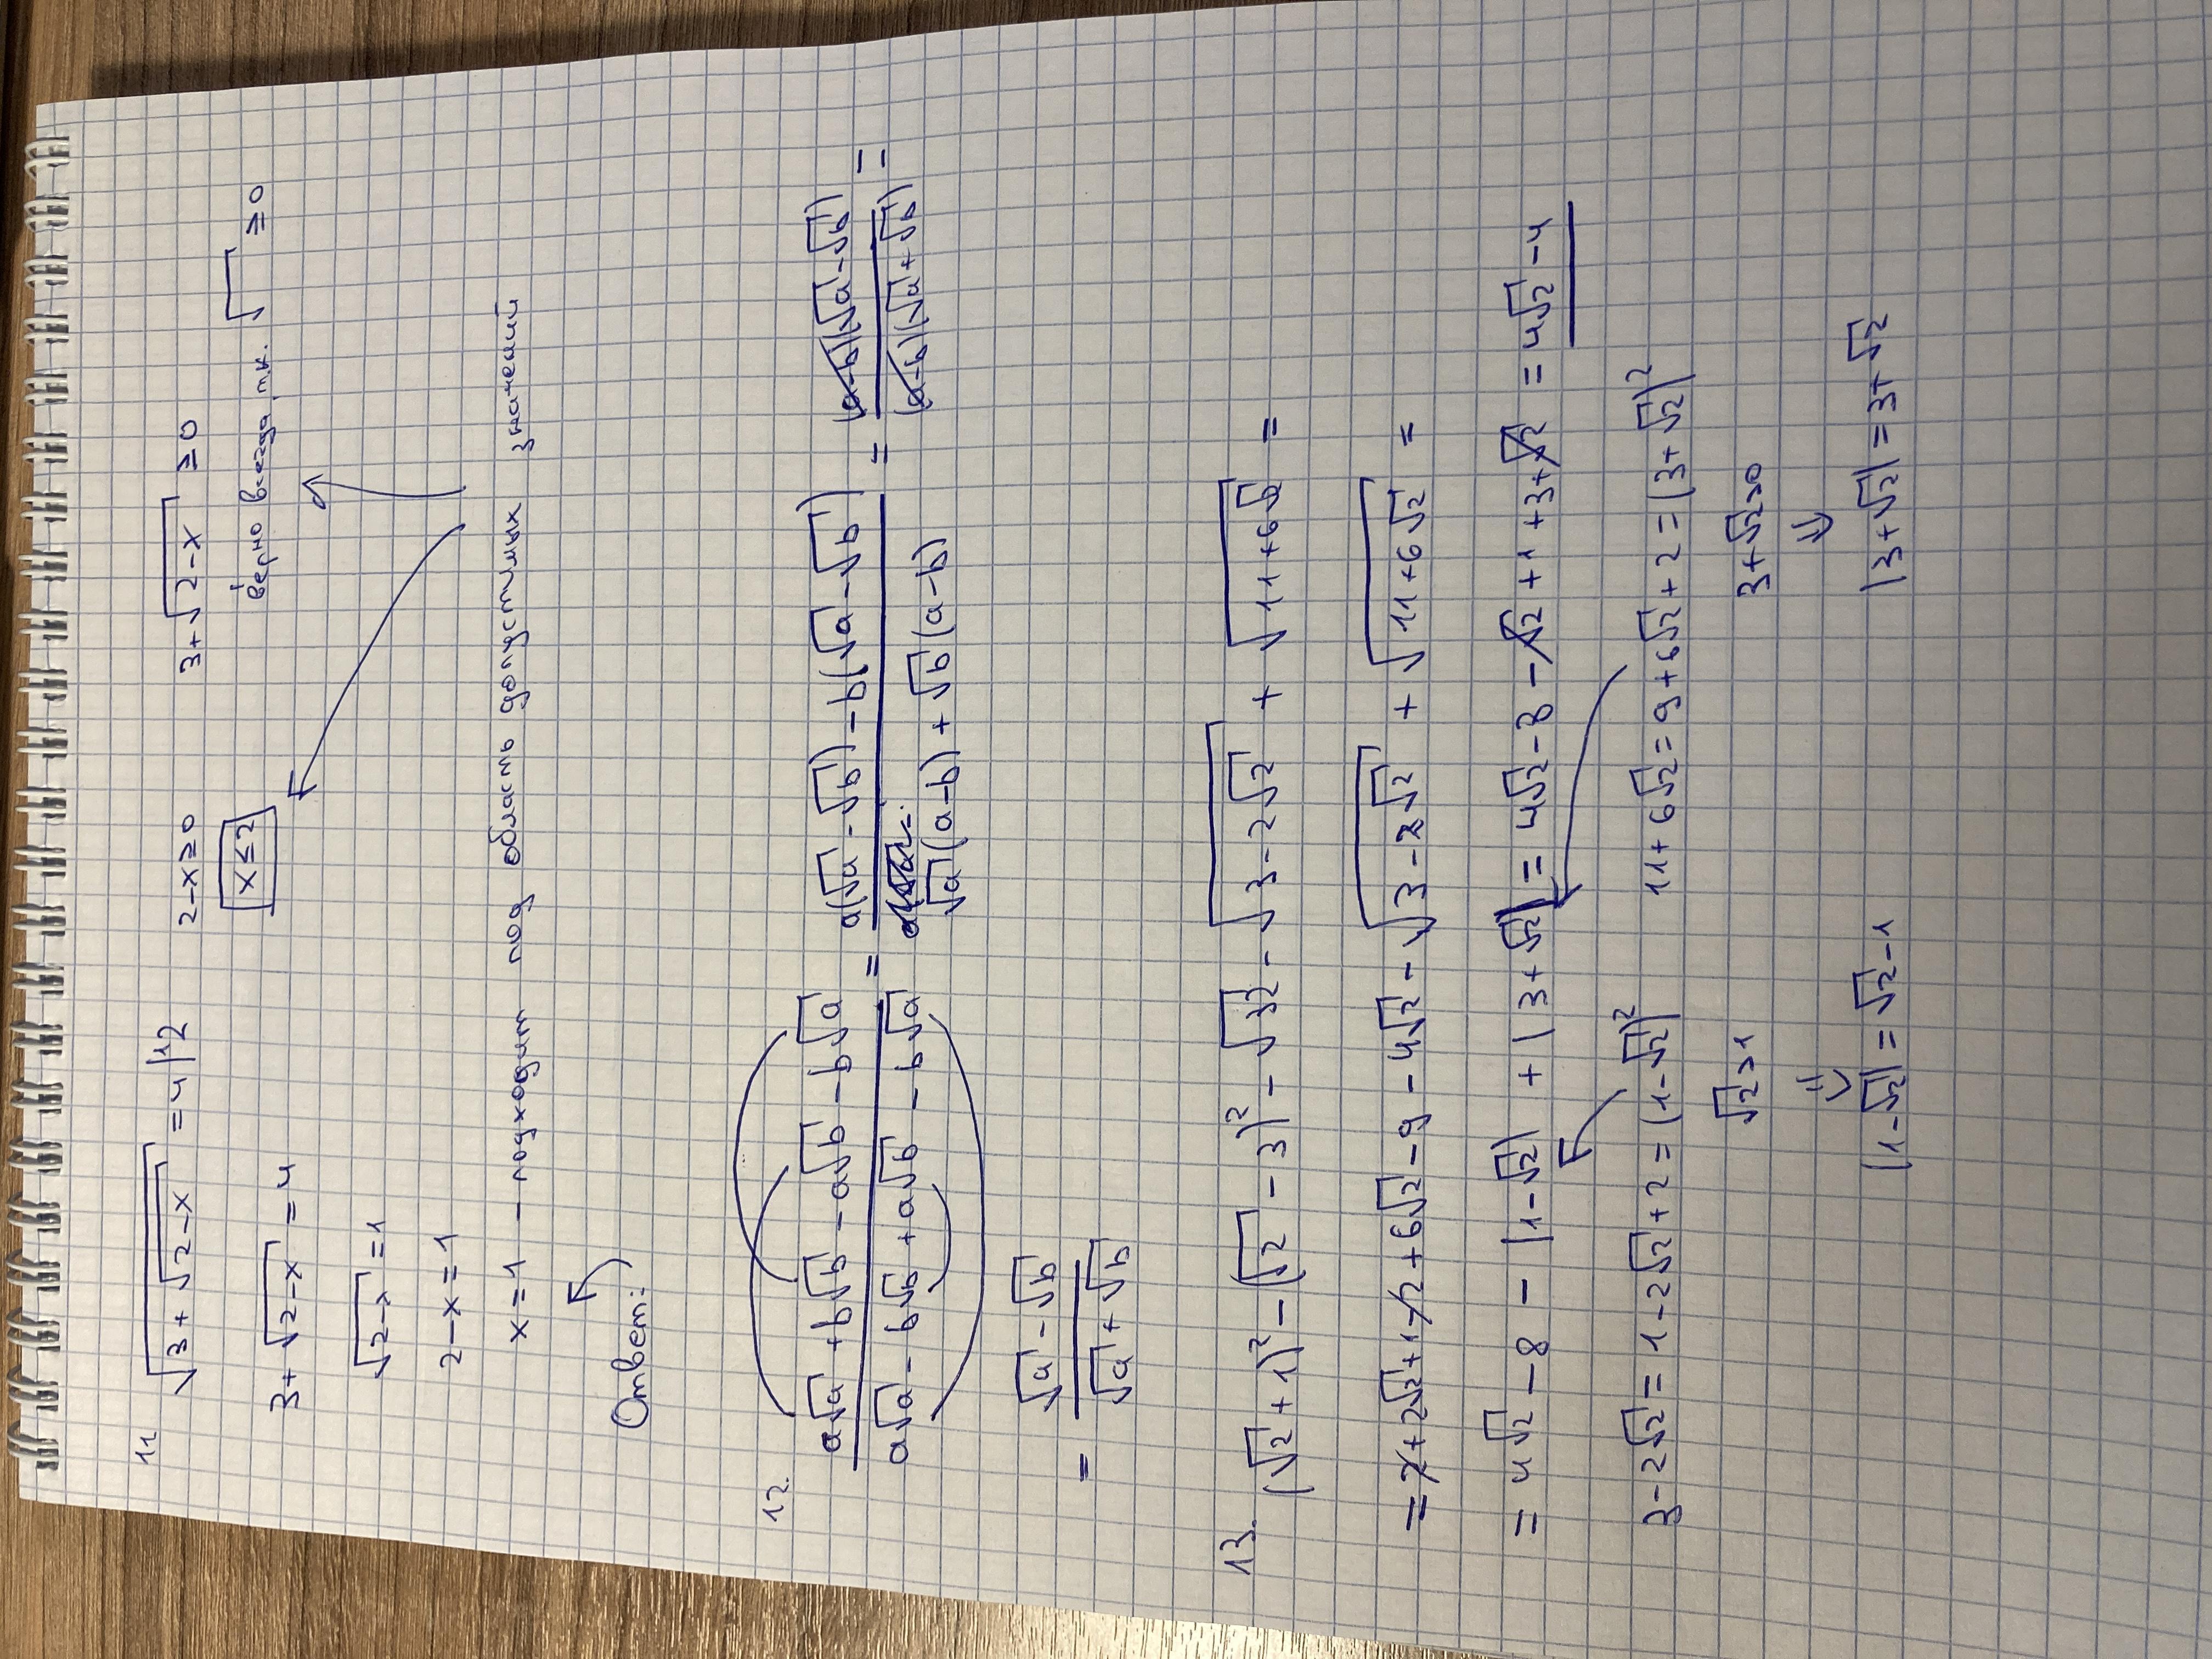 11
√(3+√(2-x)) = 4 |^2   2-x≥0   3+√(2-x) ≥0
3+√(2-x) = 4   x≤2   верно всегда, т.к. √ ≥0
√(2-x) = 1
2-x=1
x=1 - подходит под область допустимых значений
Ответ:
12.
(a√a + b√b - a√b - b√a)/(a√a - b√b + a√b - b√a) = (a(√a-√b) - b(√a-√b))/(√a(a-b) + √b(a-b)) = ((a-b)(√a-√b))/((a-b)(√a+√b)) =
= (√a-√b)/(√a+√b)
13. (√2+1)² - (√2-3)² - √32 - √(3-2√2) + √(11+6√2) =
= 2+2√2+1-2+6√2-9-4√2-√(3-2√2) + √(11+6√2) =
= 4√2-8 - |1-√2| + |3+√2| = 4√2-8-√2+1+3+√2 = 4√2-4
3-2√2 = 1-2√2+2 = (1-√2)²   11+6√2 = 9+6√2+2 = (3+√2)²
√2>1   3+√2>0
⇓   ⇓
|1-√2| = √2-1   |3+√2| = 3+√2